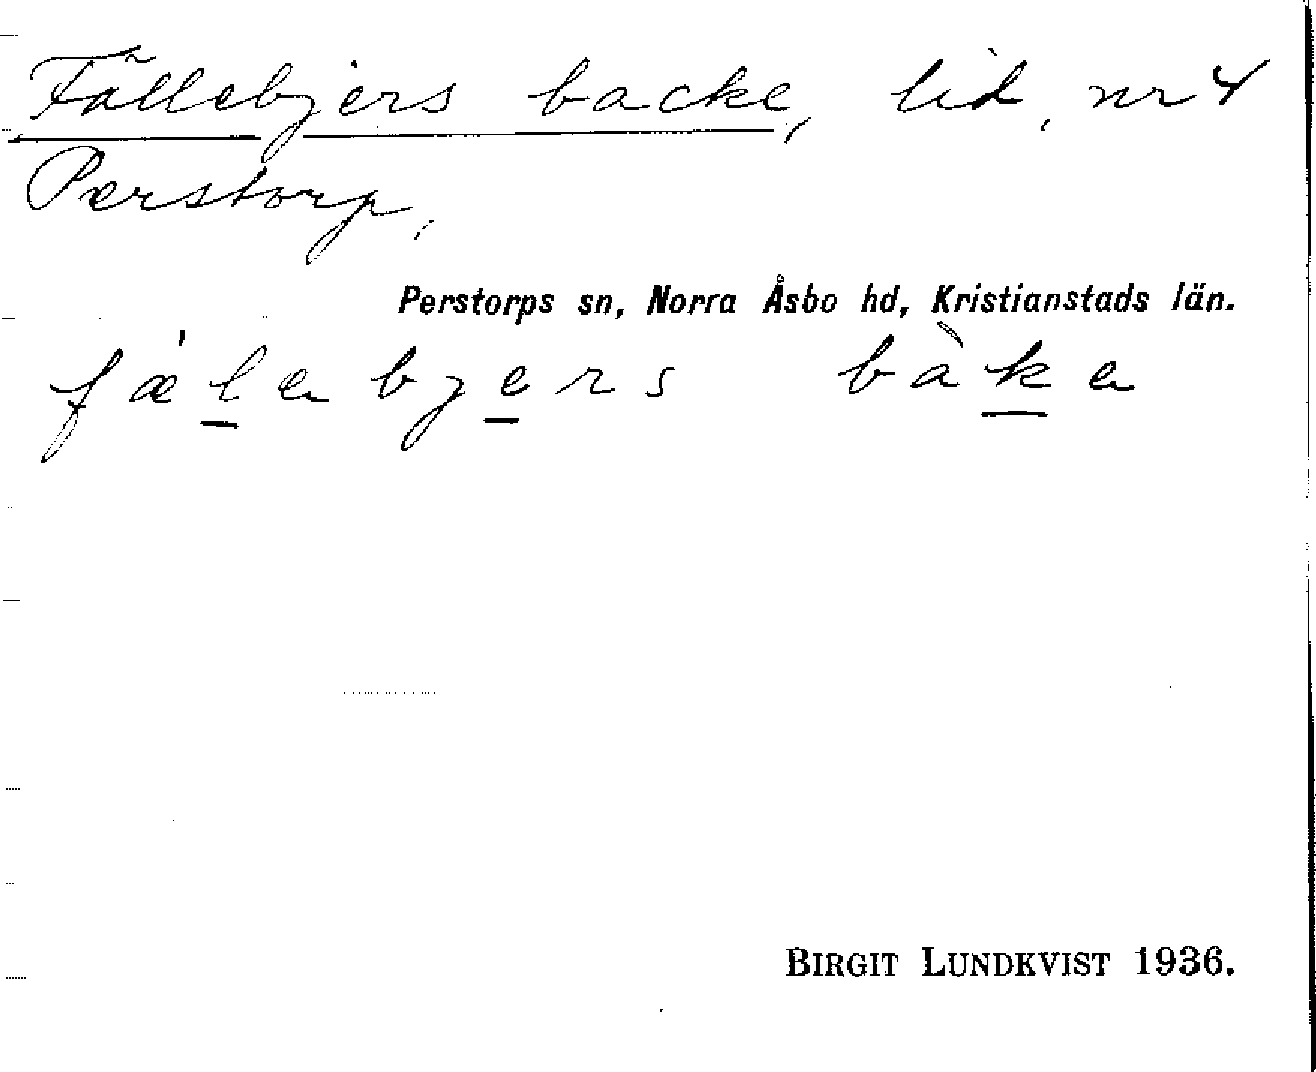 Fällebjers backe, lid, nr 4
Perstorp,
Perstorps sn, Norra Åsbo hd, Kristianstads län.
fǽlebjers bàke
BIRGIT LUNDKVIST 1936.